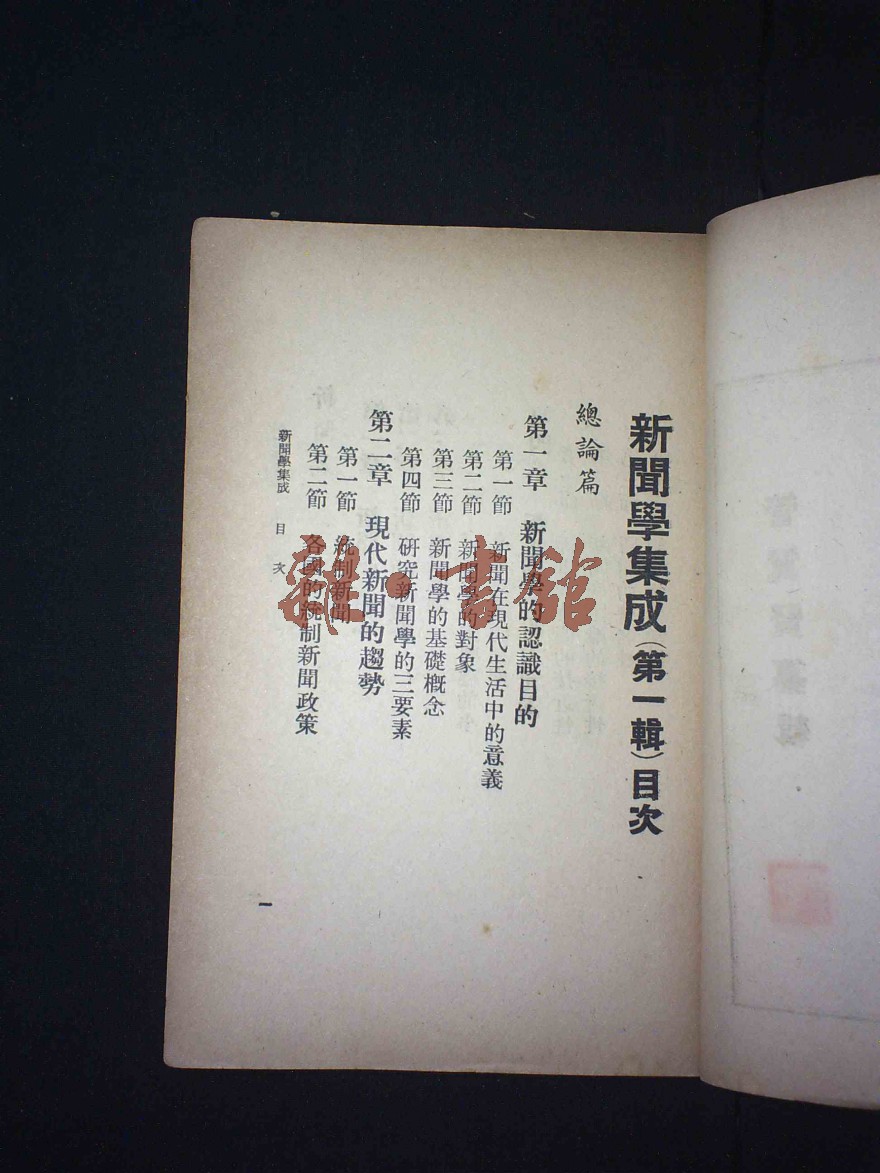 新聞學集成（第一輯）目次
總論篇
第一章 新聞學的認識目的
第一節 新聞在現代生活中的意義
第二節 新聞學的對象
第三節 新聞學的基礎概念
第四節 研究新聞學的三要素
第二章 現代新聞的趨勢
第一節 統制新聞
第二節 各國的統制新聞政策
新聞學集成 目次
一